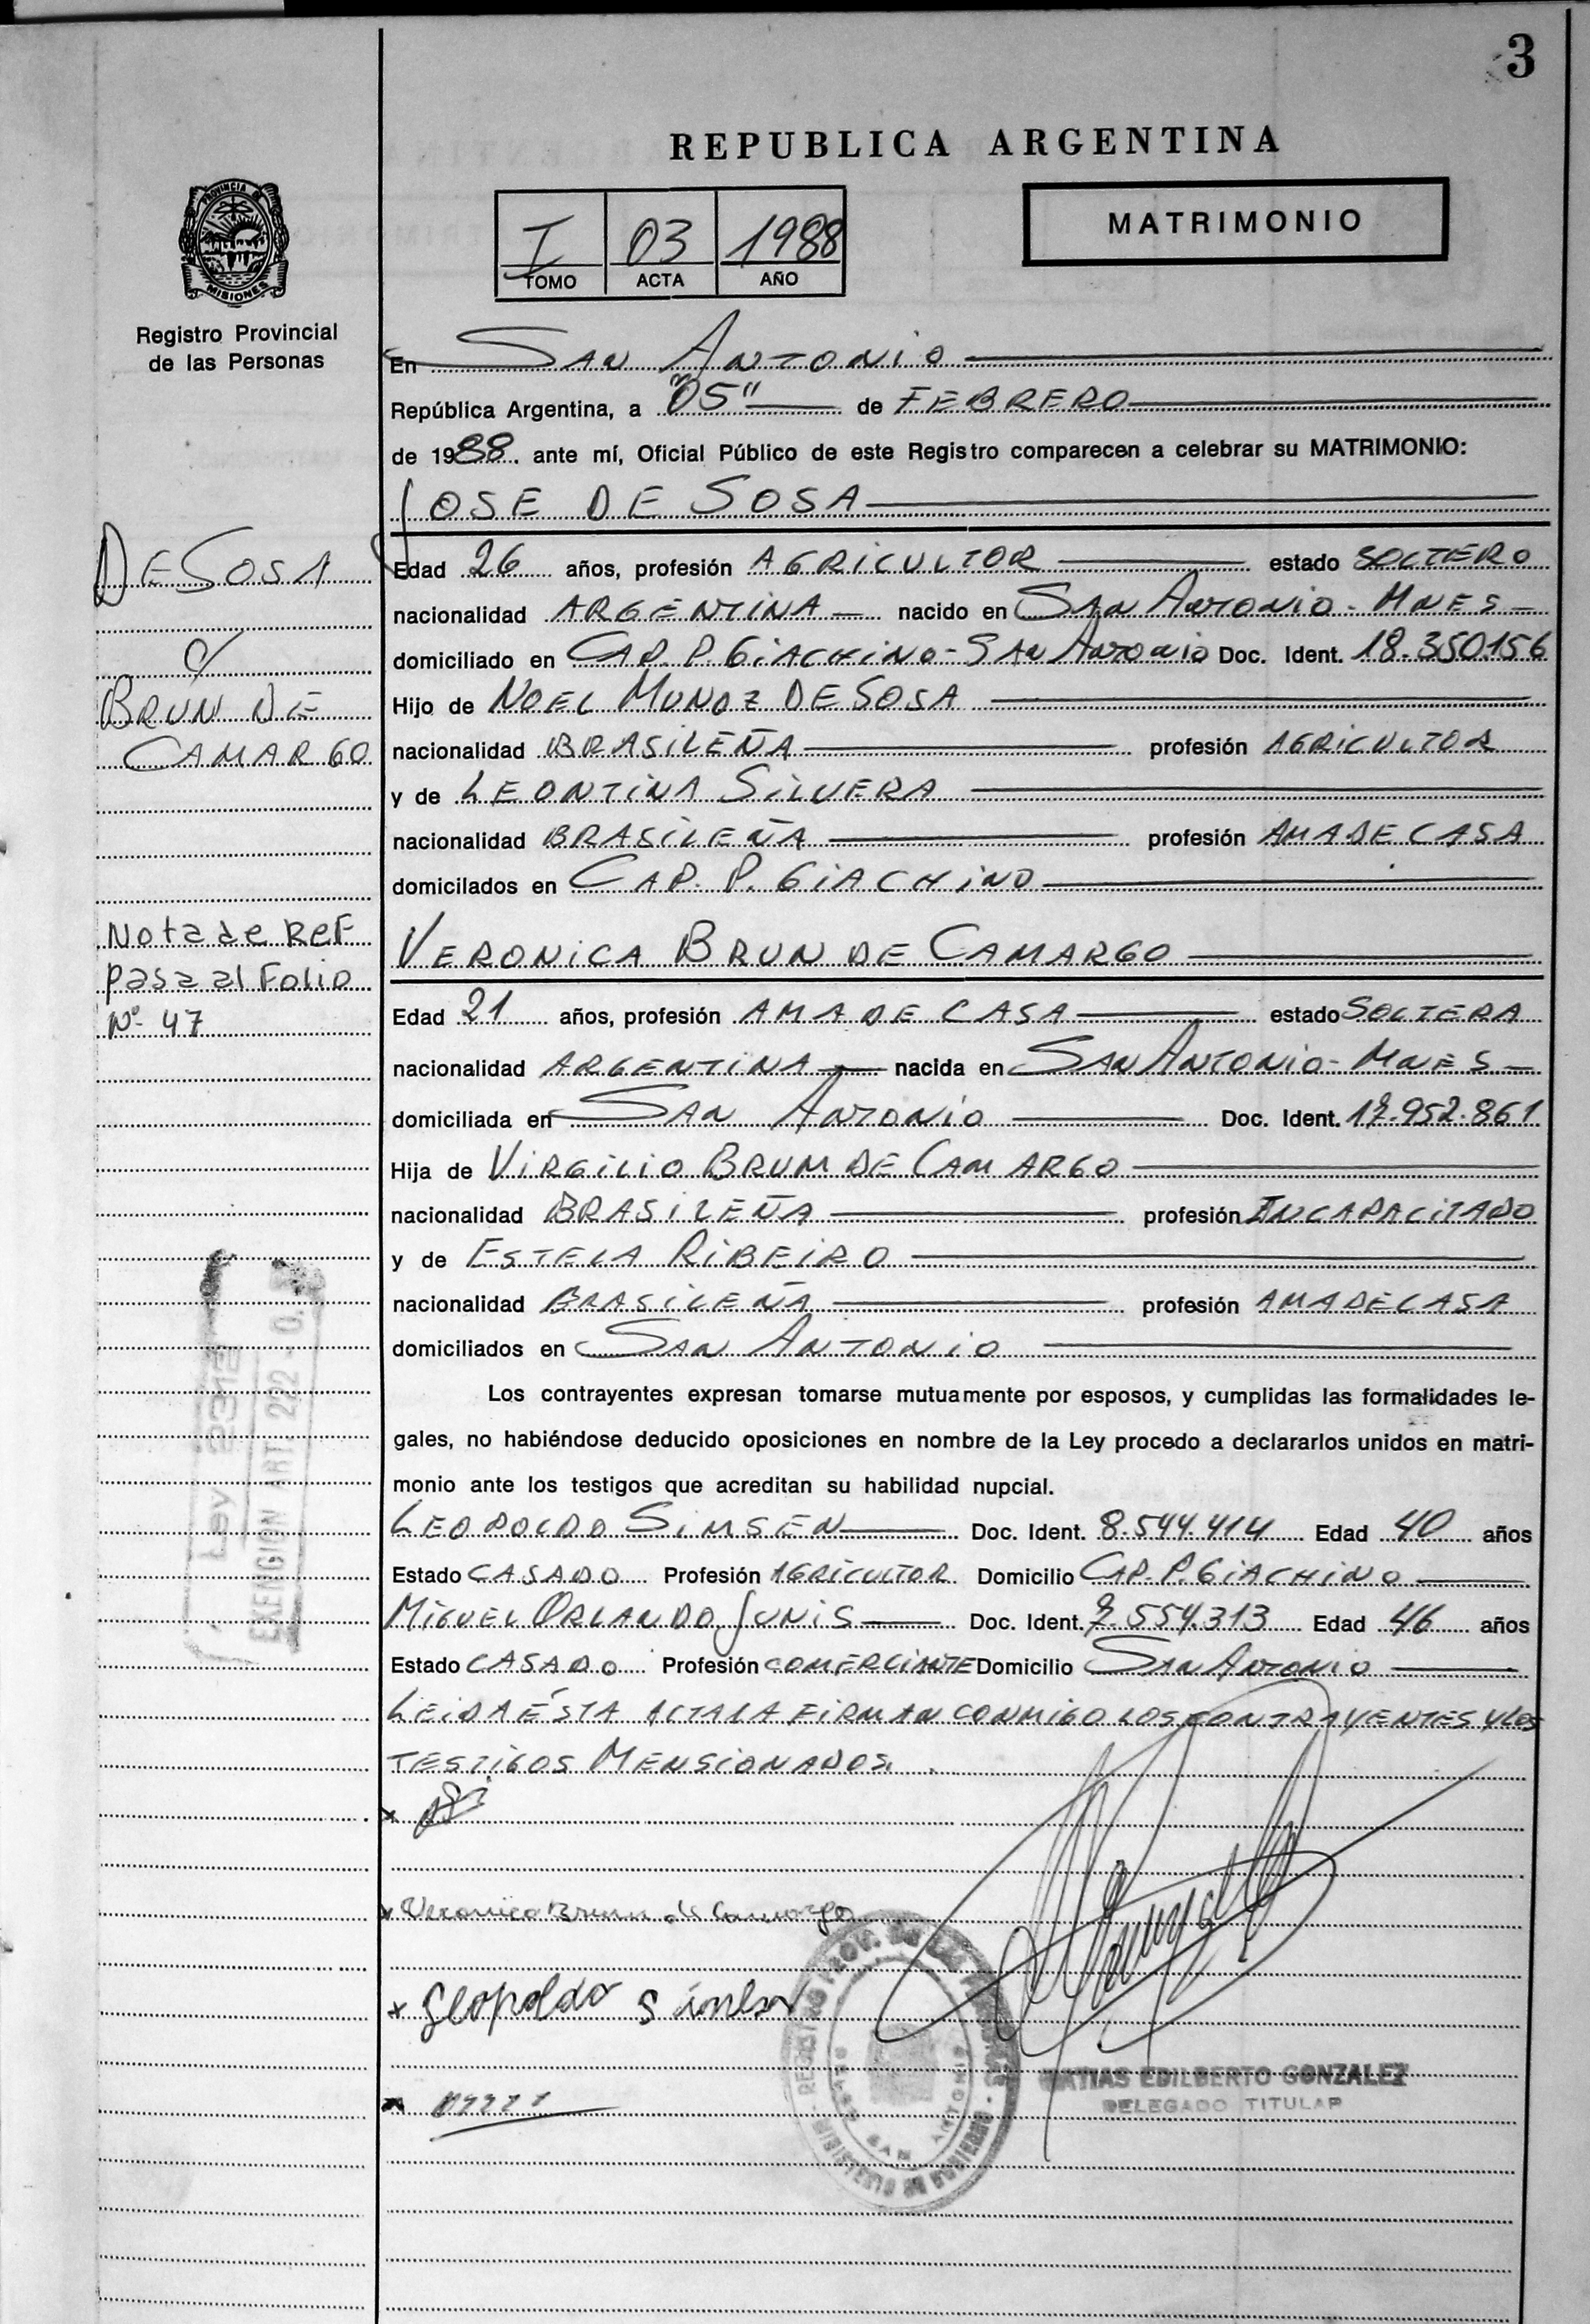 3
REPUBLICA ARGENTINA
PROVINCIA DE
MISIONES
I 03 1988
TOMO ACTA AÑO
MATRIMONIO
Registro Provincial
de las Personas
En SAN ANTONIO
República Argentina, a "05" de FEBRERO
de 1988. ante mí, Oficial Público de este Registro comparecen a celebrar su MATRIMONIO:
JOSE DE SOSA
DE SOSA
c/
BRUN DE
CAMARGO
Edad 26 años, profesión AGRICULTOR estado SOLTERO
nacionalidad ARGENTINA nacido en SAN ANTONIO - MNES
domiciliado en CAP. P. GIACHINO - SAN ANTONIO Doc. Ident. 18.350.156
Hijo de NOEL MUNOZ DE SOSA
nacionalidad BRASILEÑA profesión AGRICULTOR
y de LEONTINA SILVERA
nacionalidad BRASILEÑA profesión AMA DE CASA
domicilados en CAP. P. GIACHINO
Nota de REF
pasa al Folio
Nº 47
VERONICA BRUN DE CAMARGO
Edad 21 años, profesión AMA DE CASA estado SOLTERA
nacionalidad ARGENTINA nacida en SAN ANTONIO - MNES
domiciliada en SAN ANTONIO Doc. Ident. 17.952.861
Hija de VIRGILIO BRUM DE CAMARGO
nacionalidad BRASILEÑA profesión INCAPACITADO
y de ESTELA RIBEIRO
nacionalidad BRASILEÑA profesión AMA DE CASA
domiciliados en SAN ANTONIO
Ley
EXENCION ART. 222
Los contrayentes expresan tomarse mutuamente por esposos, y cumplidas las formalidades le-
gales, no habiéndose deducido oposiciones en nombre de la Ley procedo a declararlos unidos en matri-
monio ante los testigos que acreditan su habilidad nupcial.
LEOPOLDO SIMSEN Doc. Ident. 8.544.414 Edad 40 años
Estado CASADO Profesión AGRICULTOR Domicilio CAP. P. GIACHINO
MIGUEL ORLANDO JUNIS Doc. Ident. 7.554.313 Edad 46 años
Estado CASADO Profesión COMERCIANTE Domicilio SAN ANTONIO
LEIDA ÉSTA ACTA LA FIRMAN CONMIGO LOS CONTRAYENTES Y LOS
TESTIGOS MENSIONADOS.
x
x Veronica Brum de Camargo
x Leopoldo Simsen
x
MATIAS EDILBERTO GONZALEZ
DELEGADO TITULAR
REGISTRO PROV. DE LAS PERSONAS
SAN ANTONIO